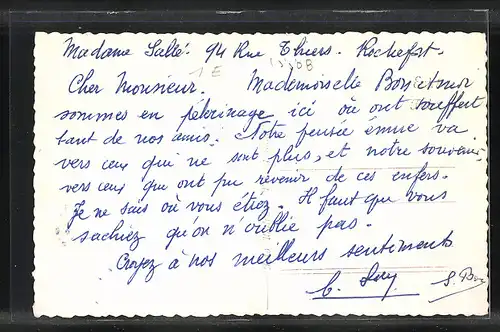 Madame Salté. 94 Rue Thiers. Rochefort.
Cher Monsieur. Mademoiselle Bon et moi
sommes en pélerinage ici où ont souffert
tant de nos amis. Notre pensée émue va
vers ceux qui ne sont plus, et notre souvenir,
vers ceux qui ont pu revenir de ces enfers.
Je ne sais où vous étiez. Il faut que vous
sachiez qu'on n'oublie pas.
Croyez à nos meilleurs sentiments